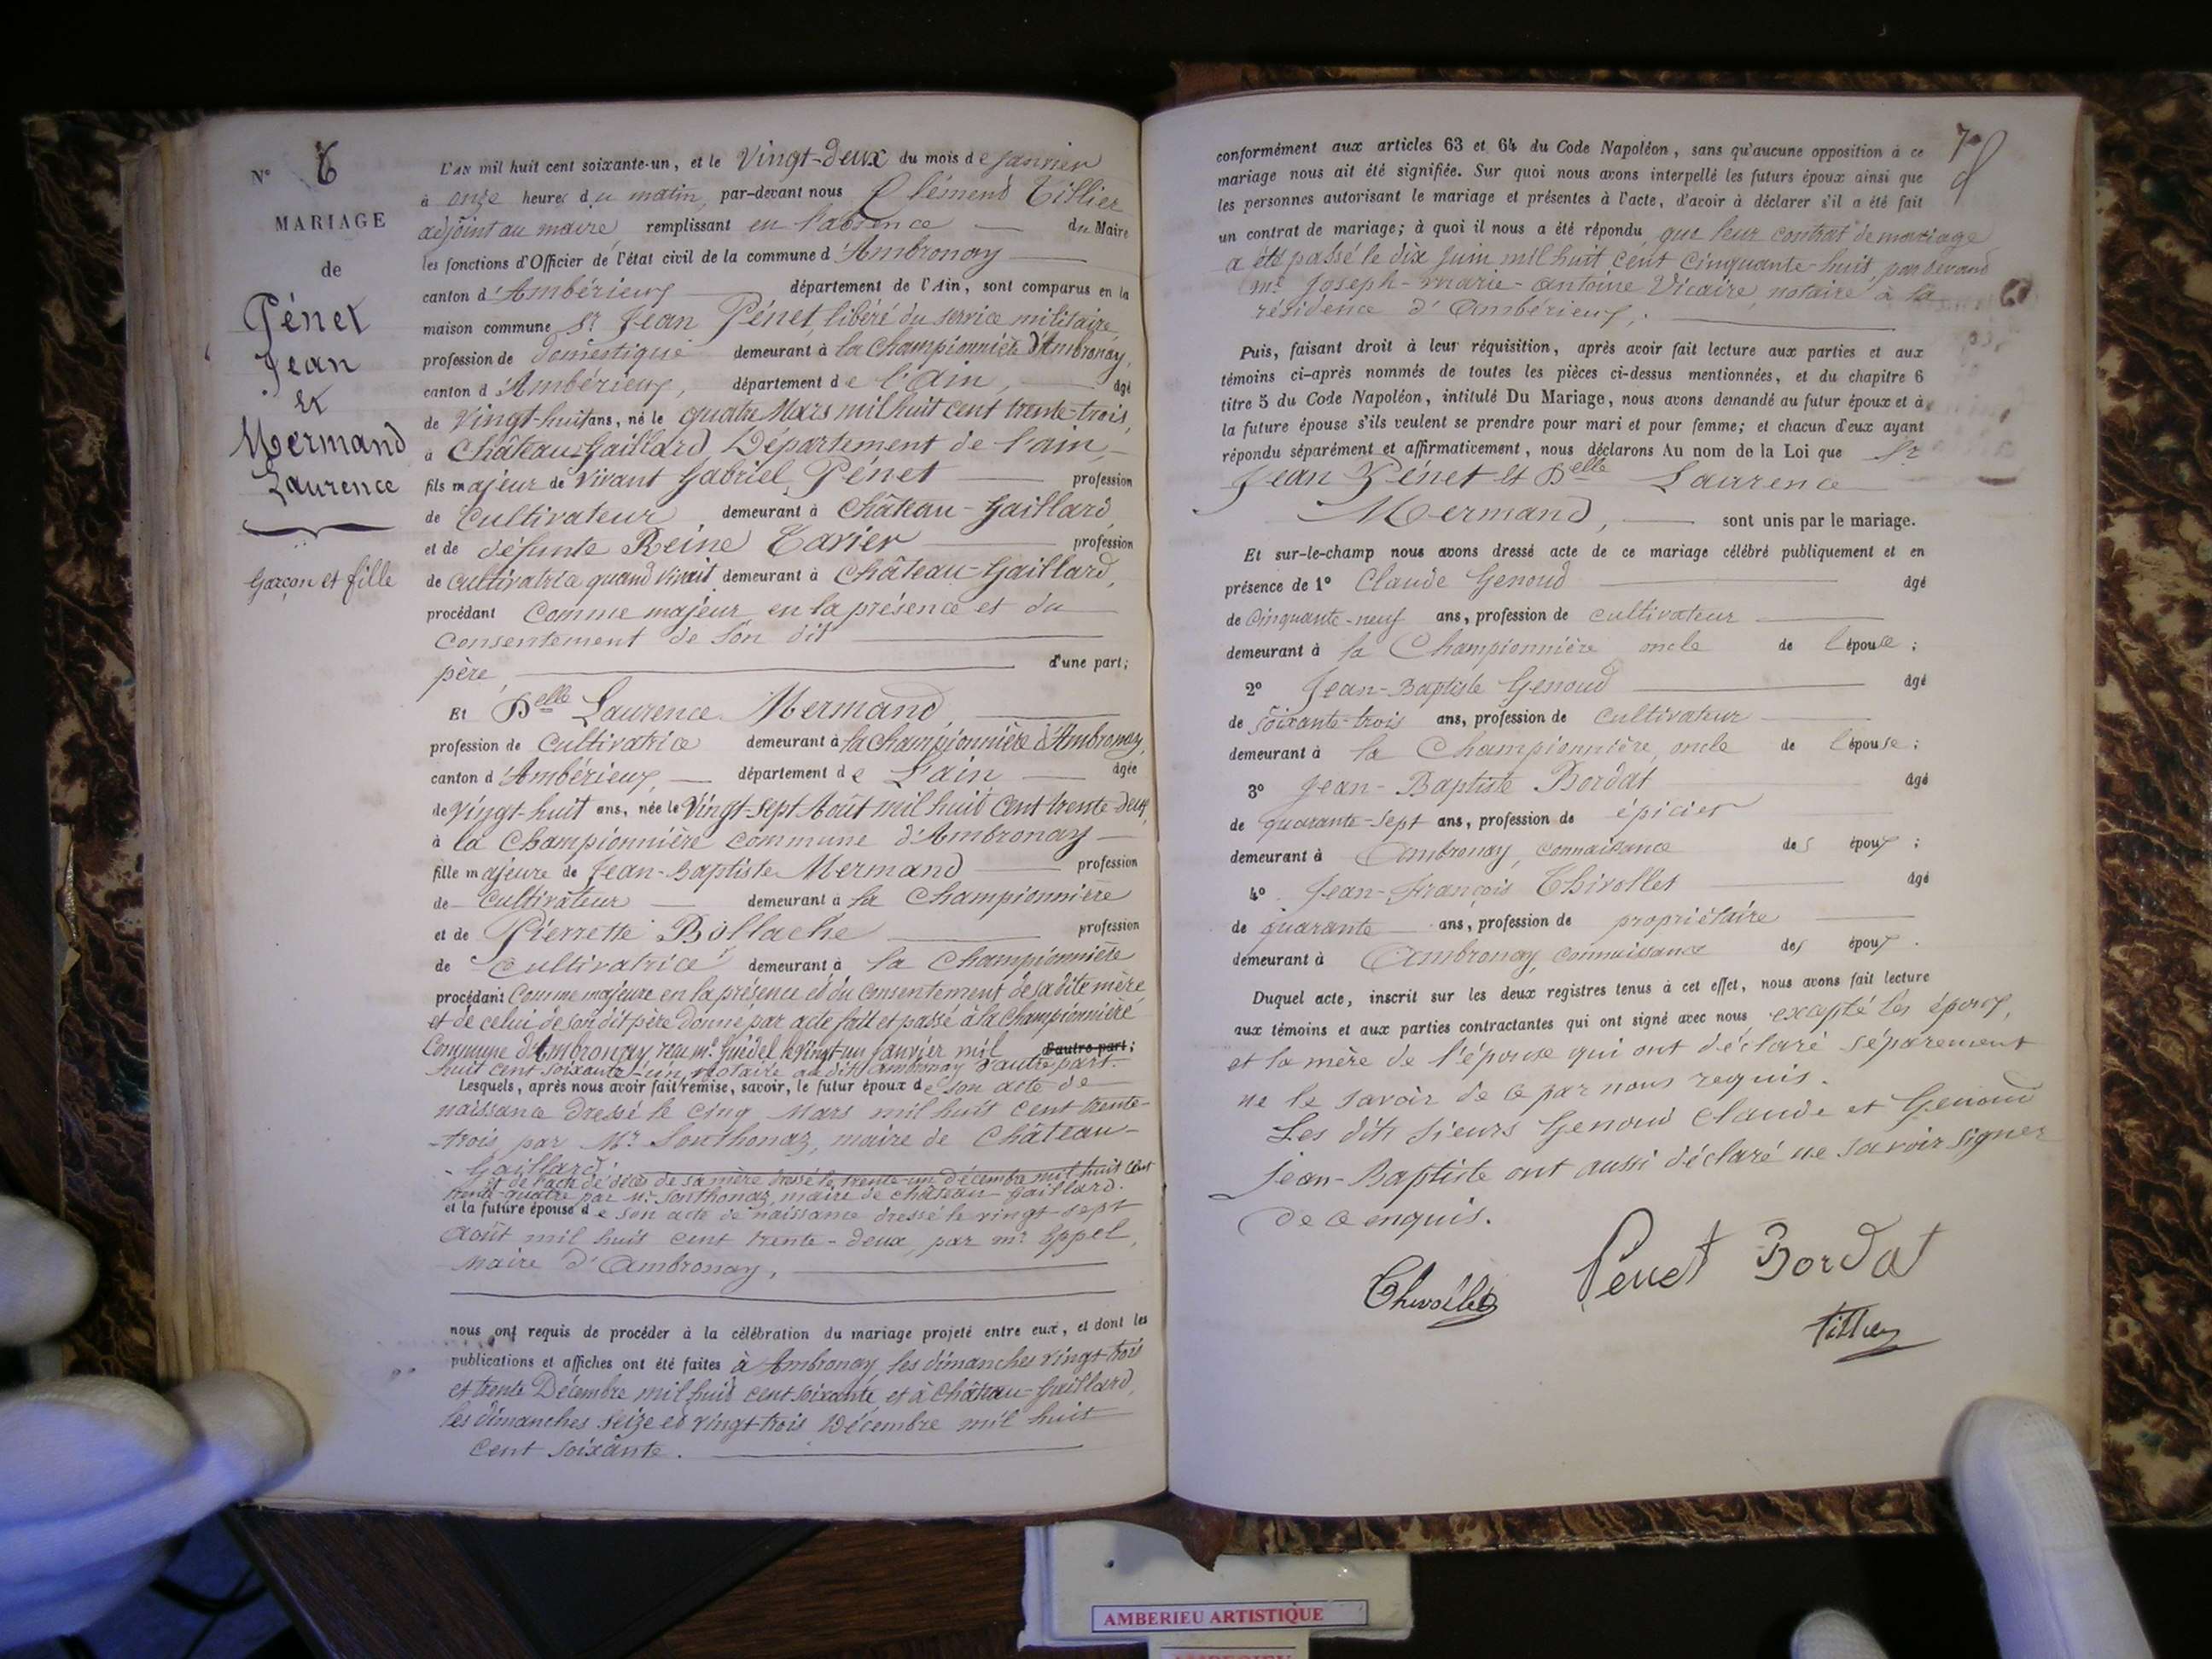 N° 6
MARIAGE
de
Pénet
Jean
et
Mermand
Laurence
Garçon et fille
L'AN mil huit cent soixante-un, et le Vingt-deux du mois de Janvier
à onze heures du matin, par-devant nous Clément Tillier
adjoint au maire remplissant en l'absence du Maire
les fonctions d'Officier de l'état civil de la commune d'Ambronay
canton d'Ambérieux département de l'Ain, sont comparus en la
maison commune Sr Jean Pénet, libéré du service militaire
profession de domestique demeurant à la Championnière d'Ambronay,
canton d'Ambérieux, département de l'Ain, âgé
de Vingt-huit ans, né le quatre Mars mil huit cent trente-trois,
à Château-Gaillard, Département de l'ain,
fils majeur de vivant Gabriel Pénet profession
de Cultivateur demeurant à Château-Gaillard
et de défunte Reine Tarier profession
de cultivatrice quand vivait demeurant à Château-Gaillard,
procédant Comme majeur en la présence et du
consentement de son dit
père d'une part;
Et Delle Laurence Mermand
profession de Cultivatrice demeurant à la Championnière d'Ambronay,
canton d'Ambérieux, département de L'ain âgée
de vingt-huit ans, née le Vingt-sept Août mil huit cent trente-deux,
à la Championnière commune d'Ambronay
fille majeure de Jean-Baptiste Mermand profession
de Cultivateur demeurant à la Championnière
et de Pierrette Bollache profession
de Cultivatrice demeurant à la Championnière
procédant Comme majeure en la présence et du consentement de sa dite mère
et de celui de son dit père donné par acte fait et passé à la Championnière
Commune d'Ambronay, reçu Me le vingt-un janvier mil d'autre part;
huit cent soixante-un, notaire au dit Ambronay d'autre part.
Lesquels, après nous avoir fait remise, savoir, le futur époux de son acte de
naissance dressé le cinq Mars mil huit cent trente-
-trois par Mr Sonthonaz, maire de Château-
-Gaillard.
et de l'acte de décès de sa mère dressé le trente-un décembre mil huit cent
trente-quatre par Mr Sonthonaz, maire de Château-Gaillard.
et la future épouse de son acte de naissance dressé le vingt-sept
Août mil huit cent trente-deux, par mr Eppel,
Maire d'Ambronay,
nous ont requis de procéder à la célébration du mariage projeté entre eux, et dont les
publications et affiches ont été faites à Ambronay, les dimanches vingt-trois
et trente Décembre mil huit cent soixante, et à Château-Gaillard,
les dimanches seize et vingt-trois Décembre mil huit
cent soixante.
7
conformément aux articles 63 et 64 du Code Napoléon, sans qu'aucune opposition à ce
mariage nous ait été signifiée. Sur quoi nous avons interpellé les futurs époux ainsi que
les personnes autorisant le mariage et présentes à l'acte, d'avoir à déclarer s'il a été fait
un contrat de mariage; à quoi il nous a été répondu que leur contrat de mariage
a été passé le dix Juin mil huit cent cinquante-huit, par devant
me Joseph-Marie-Antoine Vicaire, notaire à la
résidence d'Ambérieux;
Puis, faisant droit à leur réquisition, après avoir fait lecture aux parties et aux
témoins ci-après nommés de toutes les pièces ci-dessus mentionnées, et du chapitre 6
titre 5 du Code Napoléon, intitulé Du Mariage, nous avons demandé au futur époux et à
la future épouse s'ils veulent se prendre pour mari et pour femme; et chacun d'eux ayant
répondu séparément et affirmativement, nous déclarons Au nom de la Loi que Sr
Jean Pénet et Delle Laurence
Mermand, sont unis par le mariage.
Et sur-le-champ nous avons dressé acte de ce mariage célébré publiquement et en
présence de 1° Claude Genoud âgé
de Cinquante-neuf ans, profession de cultivateur
demeurant à la Championnière oncle de l'épouse;
2° Jean-Baptiste Genoud âgé
de soixante-trois ans, profession de Cultivateur
demeurant à la Championnière, oncle de l'épouse;
3° Jean-Baptiste Bordat âgé
de quarante-sept ans, profession de épicier
demeurant à Ambronay, connaissance des époux;
4° Jean-François Thivollet âgé
de quarante ans, profession de propriétaire
demeurant à Ambronay, connaissance des époux.
Duquel acte, inscrit sur les deux registres tenus à cet effet, nous avons fait lecture
aux témoins et aux parties contractantes qui ont signé avec nous excepté les époux,
et la mère de l'épouse qui ont déclaré séparément
ne le savoir de ce par nous requis.
Les dits sieurs Genoud Claude et Genoud
Jean-Baptiste ont aussi déclaré ne savoir signer
de ce enquis.
Thivollet Penet Bordat
Tillier
AMBERIEU ARTISTIQUE